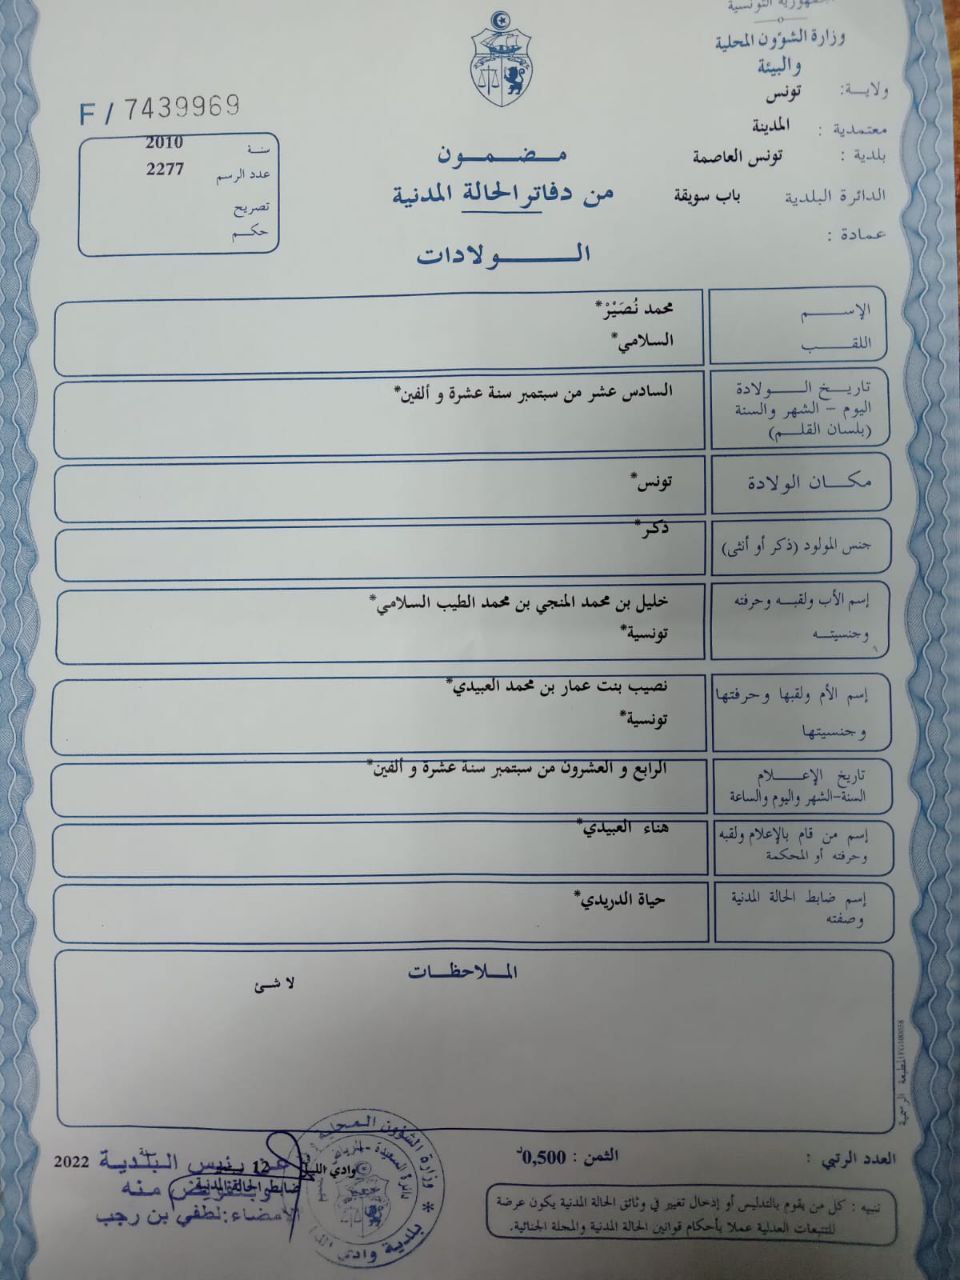 الجمهورية التونسية
وزارة الشؤون المحلية
والبيئة
ولاية: تونس
معتمدية : المدينة
بلدية : تونس العاصمة
الدائرة البلدية باب سويقة
عمادة :
F / 7439969
سنة 2010
عدد الرسم 2277
تصريح
حكم
مضمون
من دفاتر الحالة المدنية
الولادات
الإسم محمد نُصَيْرْ*
اللقب السلامي*
تاريخ الولادة السادس عشر من سبتمبر سنة عشرة و ألفين*
اليوم - الشهر والسنة
(بلسان القلم)
مكان الولادة تونس*
جنس المولود (ذكر أو أنثى) ذكر*
إسم الأب ولقبه وحرفته خليل بن محمد المنجي بن محمد الطيب السلامي*
وجنسيته تونسية*
إسم الأم ولقبها وحرفتها نصيب بنت عمار بن محمد العبيدي*
وجنسيتها تونسية*
تاريخ الإعلام الرابع و العشرون من سبتمبر سنة عشرة و ألفين*
السنة-الشهر واليوم والساعة
إسم من قام بالإعلام ولقبه هناء العبيدي*
وحرفته أو المحكمة
إسم ضابط الحالة المدنية حياة الدريدي*
وصفته
الملاحظات
لا شئ
العدد الرتبي :
الثمن : 0,500د
وادي الليل 12 2022
ضابط الحالة المدنية
عن رئيس البلدية
وبتفويض منه
الامضاء: لطفي بن رجب
وزارة الشؤون المحلية
بلدية وادي الليل
تنبيه : كل من يقوم بالتدليس أو إدخال تغيير في وثائق الحالة المدنية يكون عرضة
للتتبعات العدلية عملا بأحكام قوانين الحالة المدنية والمجلة الجنائية.
المطبعة الرسمية